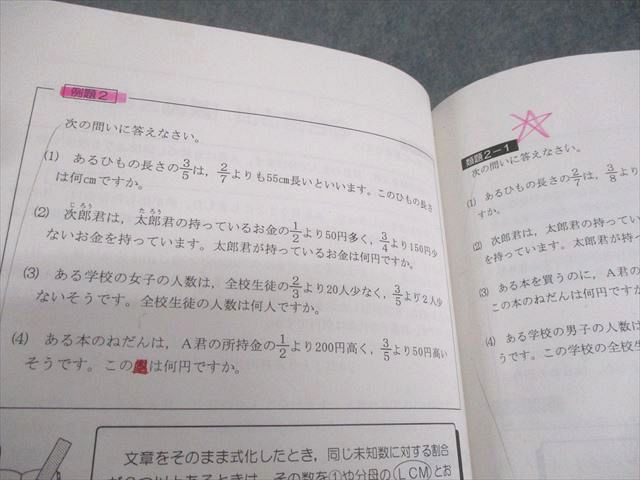 例題2
次の問いに答えなさい。
(1) あるひもの長さの3/5は，2/7よりも55cm長いといいます。このひもの長さ
は何cmですか。
(2) 次郎君は，太郎君の持っているお金の1/2より50円多く，3/4より150円少
ないお金を持っています。太郎君が持っているお金は何円ですか。
(3) ある学校の女子の人数は，全校生徒の2/3より20人少なく，3/5より2人少
ないそうです。全校生徒の人数は何人ですか。
(4) ある本のねだんは，A君の所持金の1/2より200円高く，3/5より50円高い
そうです。この
は何円ですか。
文章をそのまま式化したとき，同じ未知数に対する割合
が2つ以上あるときは，その数を①や分母の(LCM)とお
類題2-1
次の問いに答えなさい。
(1) あるひもの長さの2/7は，3/8より
すか。
(2) 次郎君は，太郎君の持ってい
を持っています。太郎君が持っ
(3) ある本を買うのに，A君の
この本のねだんは何円ですか
(4) ある学校の男子の人数は
うです。この学校の全校生